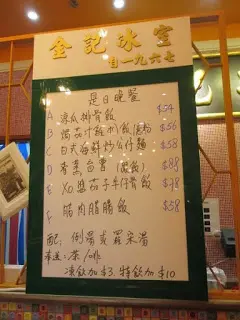 金記冰室
自一九六七
是日晚餐
A 涼瓜排骨飯 $54
B 燭茄汁雜扒飯 $56
C 日式海鮮炒公仔麵 $58
D $88
E XO醬切子牛仔骨飯 $78
F 腊肉腊腸飯 $58
配：例湯或羅宋湯
奉送：茶/啡
凍飲加$3 特飲加$10